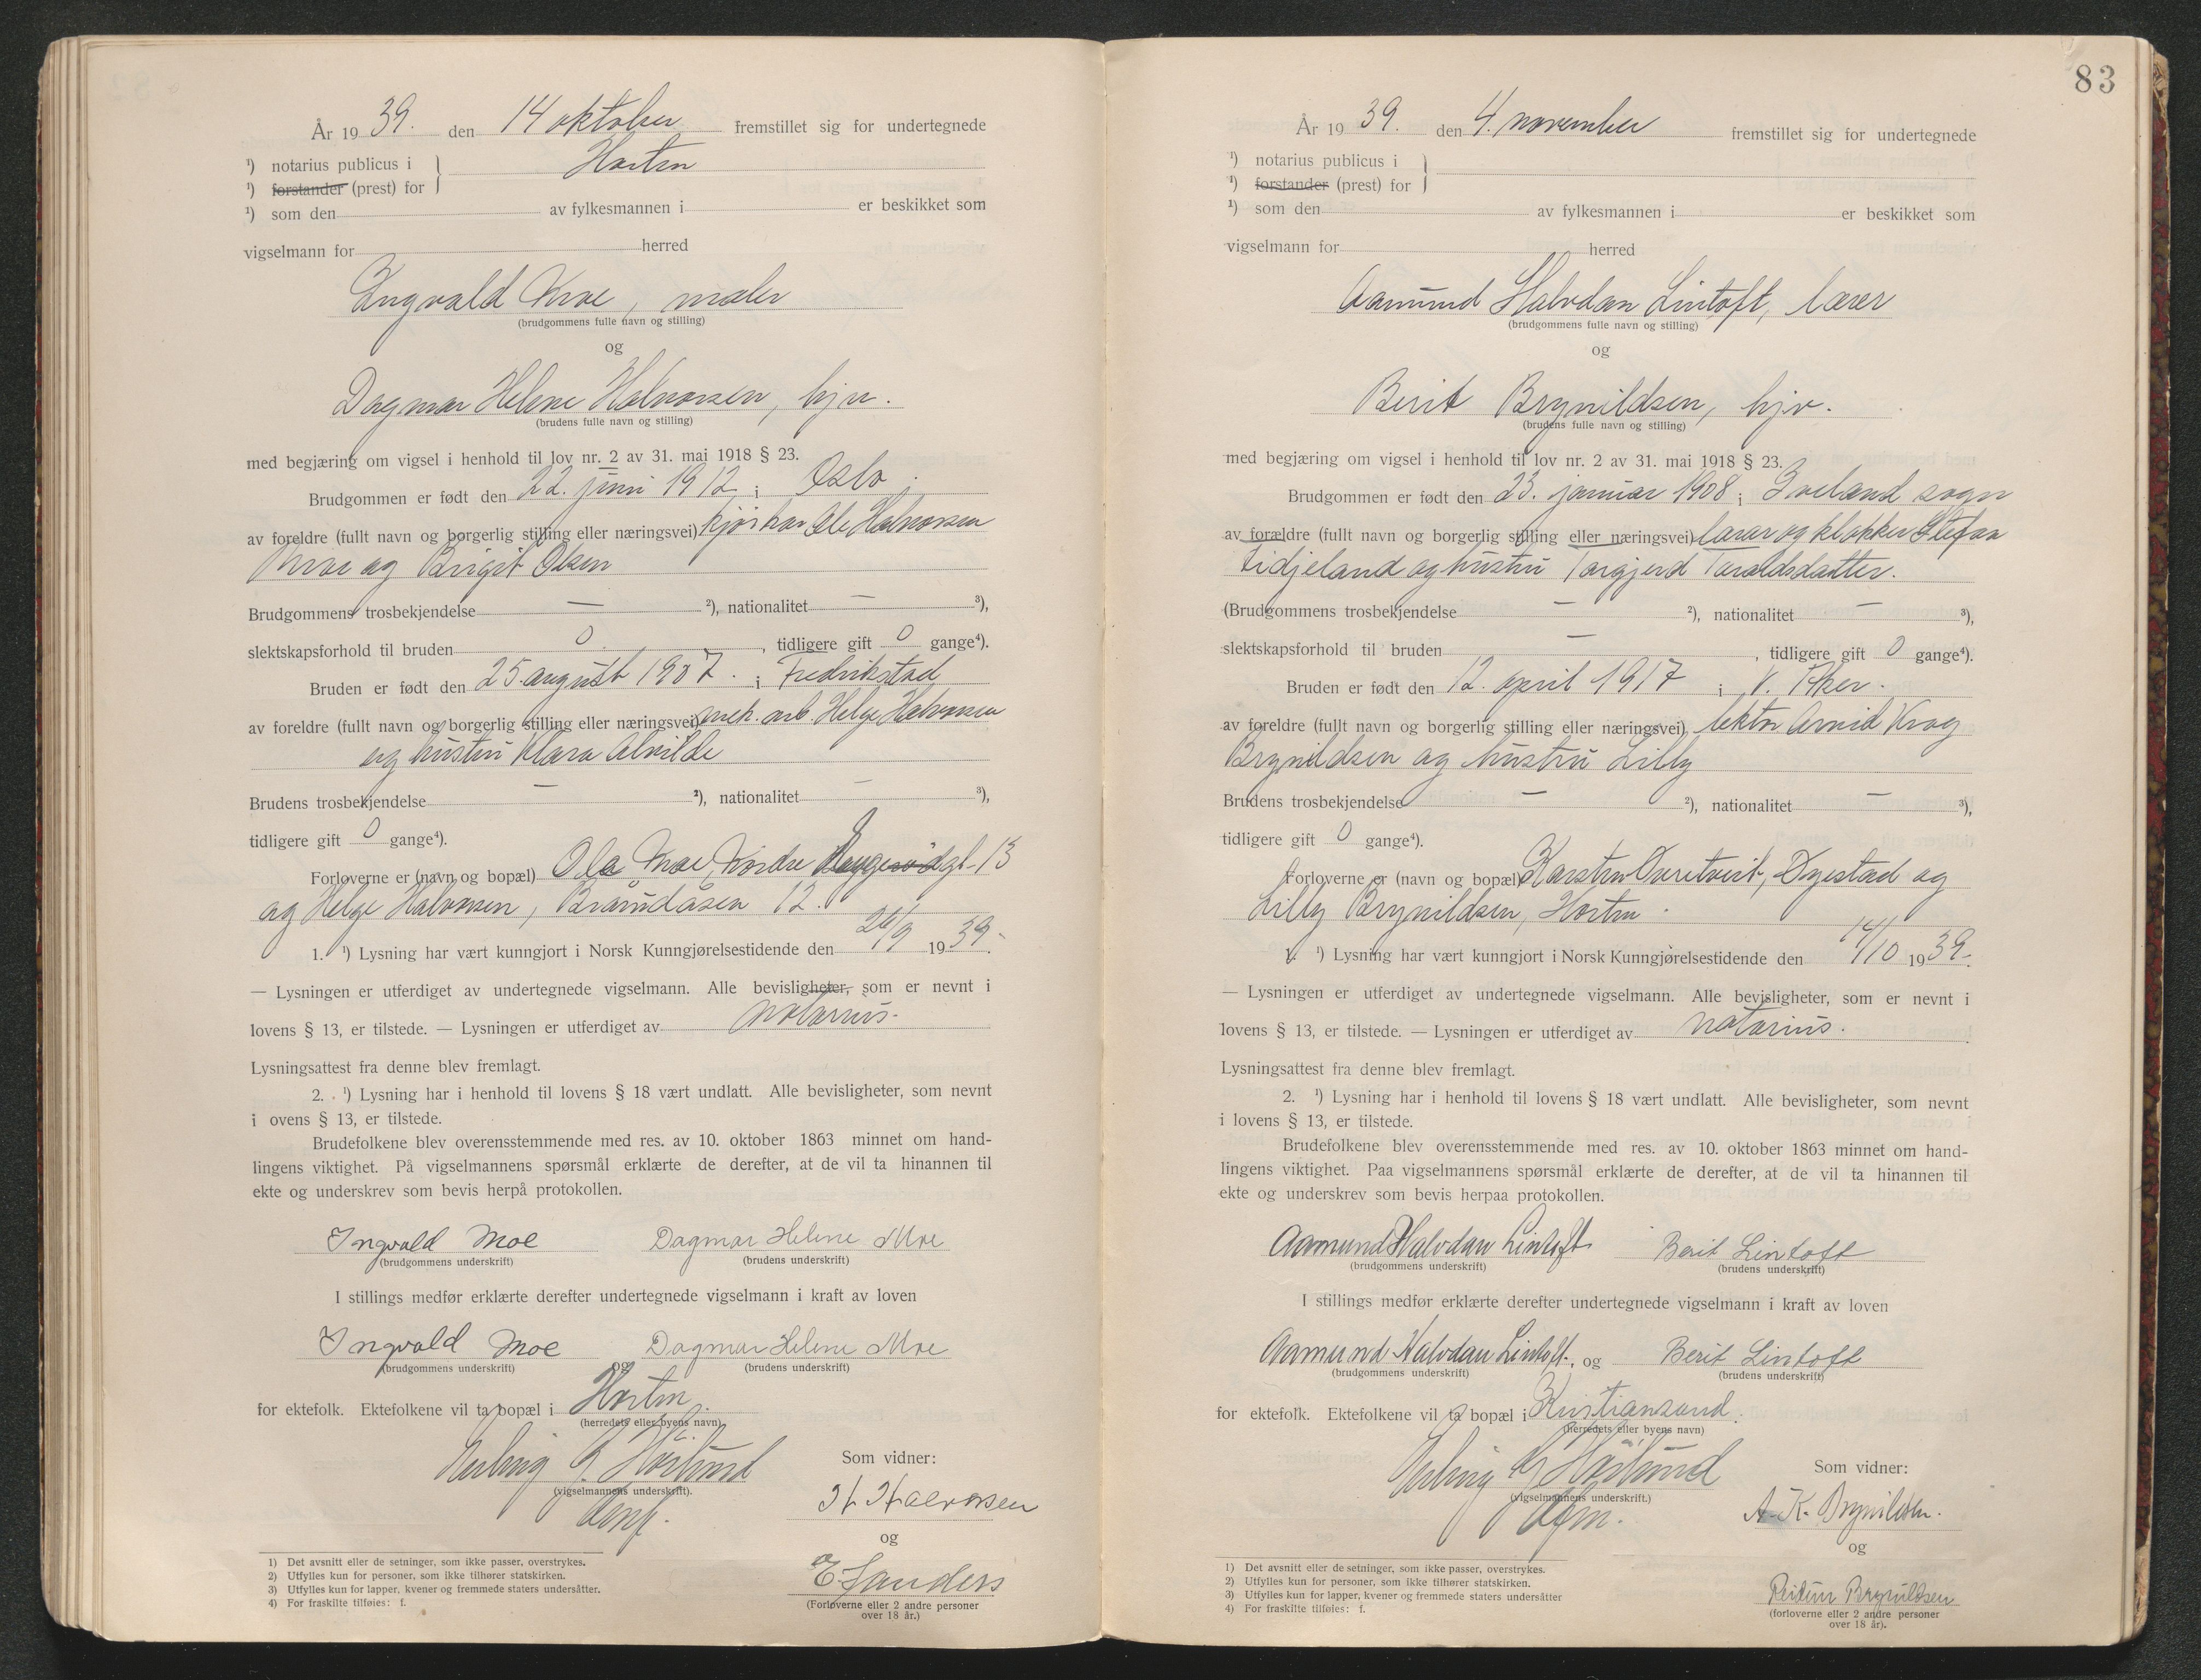 År 19 39. den 14 oktober fremstillet sig for undertegnede
¹) notarius publicus i Horten
¹) forstander (prest) for
¹) som den av fylkesmannen i er beskikket som
vigselmann for herred
Ingvald Moe, maler
(brudgommens fulle navn og stilling)
og
Dagmar Helene Halvorsen, hjv.
(brudens fulle navn og stilling)
med begjæring om vigsel i henhold til lov nr. 2 av 31. mai 1918 § 23.
Brudgommen er født den 22. juni 1912 i Oslo
av foreldre (fullt navn og borgerlig stilling eller næringsvei) Ole Halvorsen
Moe og Birgit Olsen
Brudgommens trosbekjendelse — ²), nationalitet — ³),
slektskapsforhold til bruden 0, tidligere gift 0 gange⁴).
Bruden er født den 25. august 1907. i Fredrikstad
av foreldre (fullt navn og borgerlig stilling eller næringsvei) mek. arb. Helge Halvorsen
og hustru Klara Alvilde
Brudens trosbekjendelse — ²), nationalitet — ³),
tidligere gift 0 gange⁴).
Forloverne er (navn og bopæl) Ola Moe, Nordre gt. 13
og Helge Halvorsen, Bråndåsen 12.
1. ¹) Lysning har vært kunngjort i Norsk Kunngjørelsestidende den /9 1939.
— Lysningen er utferdiget av undertegnede vigselmann. Alle bevisligheter, som er nevnt i
lovens § 13, er tilstede. — Lysningen er utferdiget av notarius.
Lysningsattest fra denne blev fremlagt.
2. ¹) Lysning har i henhold til lovens § 18 vært undlatt. Alle bevisligheter, som nevnt
i ovens § 13, er tilstede.
Brudefolkene blev overensstemmende med res. av 10. oktober 1863 minnet om hand-
lingens viktighet. På vigselmannens spørsmål erklærte de derefter, at de vil ta hinannen til
ekte og underskrev som bevis herpå protokollen.
Ingvald Moe Dagmar Helene Moe
(brudgommens underskrift) (brudens underskrift)
I stillings medfør erklærte derefter undertegnede vigselmann i kraft av loven
Ingvald Moe og Dagmar Helene Moe
(brudgommens underskrift) (brudens underskrift)
for ektefolk. Ektefolkene vil ta bopæl i Horten.
(herredets eller byens navn)
Erling
(vigselmannens underskrift).
Som vidner:
H Halvorsen
og
E. Sanders
(Forloverne eller 2 andre personer
over 18 år.)
1) Det avsnitt eller de setninger, som ikke passer, overstrykes.
2) Utfylles kun for personer, som ikke tilhører statskirken.
3) Utfylles kun for lapper, kvener og fremmede staters undersåtter.
4) For fraskilte tilføies: f.
83
År 19 39. den 4. november fremstillet sig for undertegnede
¹) notarius publicus i
¹) forstander (prest) for
¹) som den av fylkesmannen i er beskikket som
vigselmann for herred
Aamund Halvdan Lintoft, lærer
(brudgommens fulle navn og stilling)
og
Berit Brynildsen, hjv.
(brudens fulle navn og stilling)
med begjæring om vigsel i henhold til lov nr. 2 av 31. mai 1918 § 23.
Brudgommen er født den 23. januar 1908 i Iveland sogn
av forældre (fullt navn og borgerlig stilling eller næringsvei) lærer og klokker Stefan
Lidjeland og hustru Torgjerd Taraldsdatter.
(Brudgommens trosbekjendelse — ²), nationalitet — ³),
slektskapsforhold til bruden —, tidligere gift 0 gange⁴).
Bruden er født den 12. april 1917 i V. Aker.
av foreldre (fullt navn og borgerlig stilling eller næringsvei) lektor Arvid Krog
Brynildsen og hustru Lilly
Brudens trosbekjendelse — ²), nationalitet — ³),
tidligere gift 0 gange⁴).
Forloverne er (navn og bopæl) Karsten Øvretveit, Øyestad og
Lilly Brynildsen, Horten.
1. ¹) Lysning har vært kunngjort i Norsk Kunngjørelsestidende den 14/10 1939.
— Lysningen er utferdiget av undertegnede vigselmann. Alle bevisligheter, som er nevnt i
lovens § 13, er tilstede. — Lysningen er utferdiget av notarius.
Lysningsattest fra denne blev fremlagt.
2. ¹) Lysning har i henhold til lovens § 18 vært undlatt. Alle bevisligheter, som nevnt
i lovens § 13, er tilstede.
Brudefolkene blev overensstemmende med res. av 10. oktober 1863 minnet om hand-
lingens viktighet. Paa vigselmannens spørsmål erklærte de derefter, at de vil ta hinannen til
ekte og underskrev som bevis herpaa protokollen.
Aamund Halvdan Lintoft Berit Lintoft
(brudgommens underskrift) (brudens underskrift)
I stillings medfør erklærte derefter undertegnede vigselmann i kraft av loven
Aamund Halvdan Lintoft, og Berit Lintoft
(brudgommens underskrift) (brudens underskrift)
for ektefolk. Ektefolkene vil ta bopæl i Kristiansand.
(herredets eller byens navn)
Erling
(vigselmannens underskrift.)
Som vidner:
A. K. Brynildsen.
og
Reidun Brynildsen
(forloverne eller 2 andre personer
over 18 år).
1) Det avsnitt eller de setninger, som ikke passer, overstrykes.
2) Utfylles kun for personer, som ikke tilhører statskirken.
3) Utfylles kun for lapper, kvener og fremmede staters undersåtter
4) For fraskilte tilføles: f.